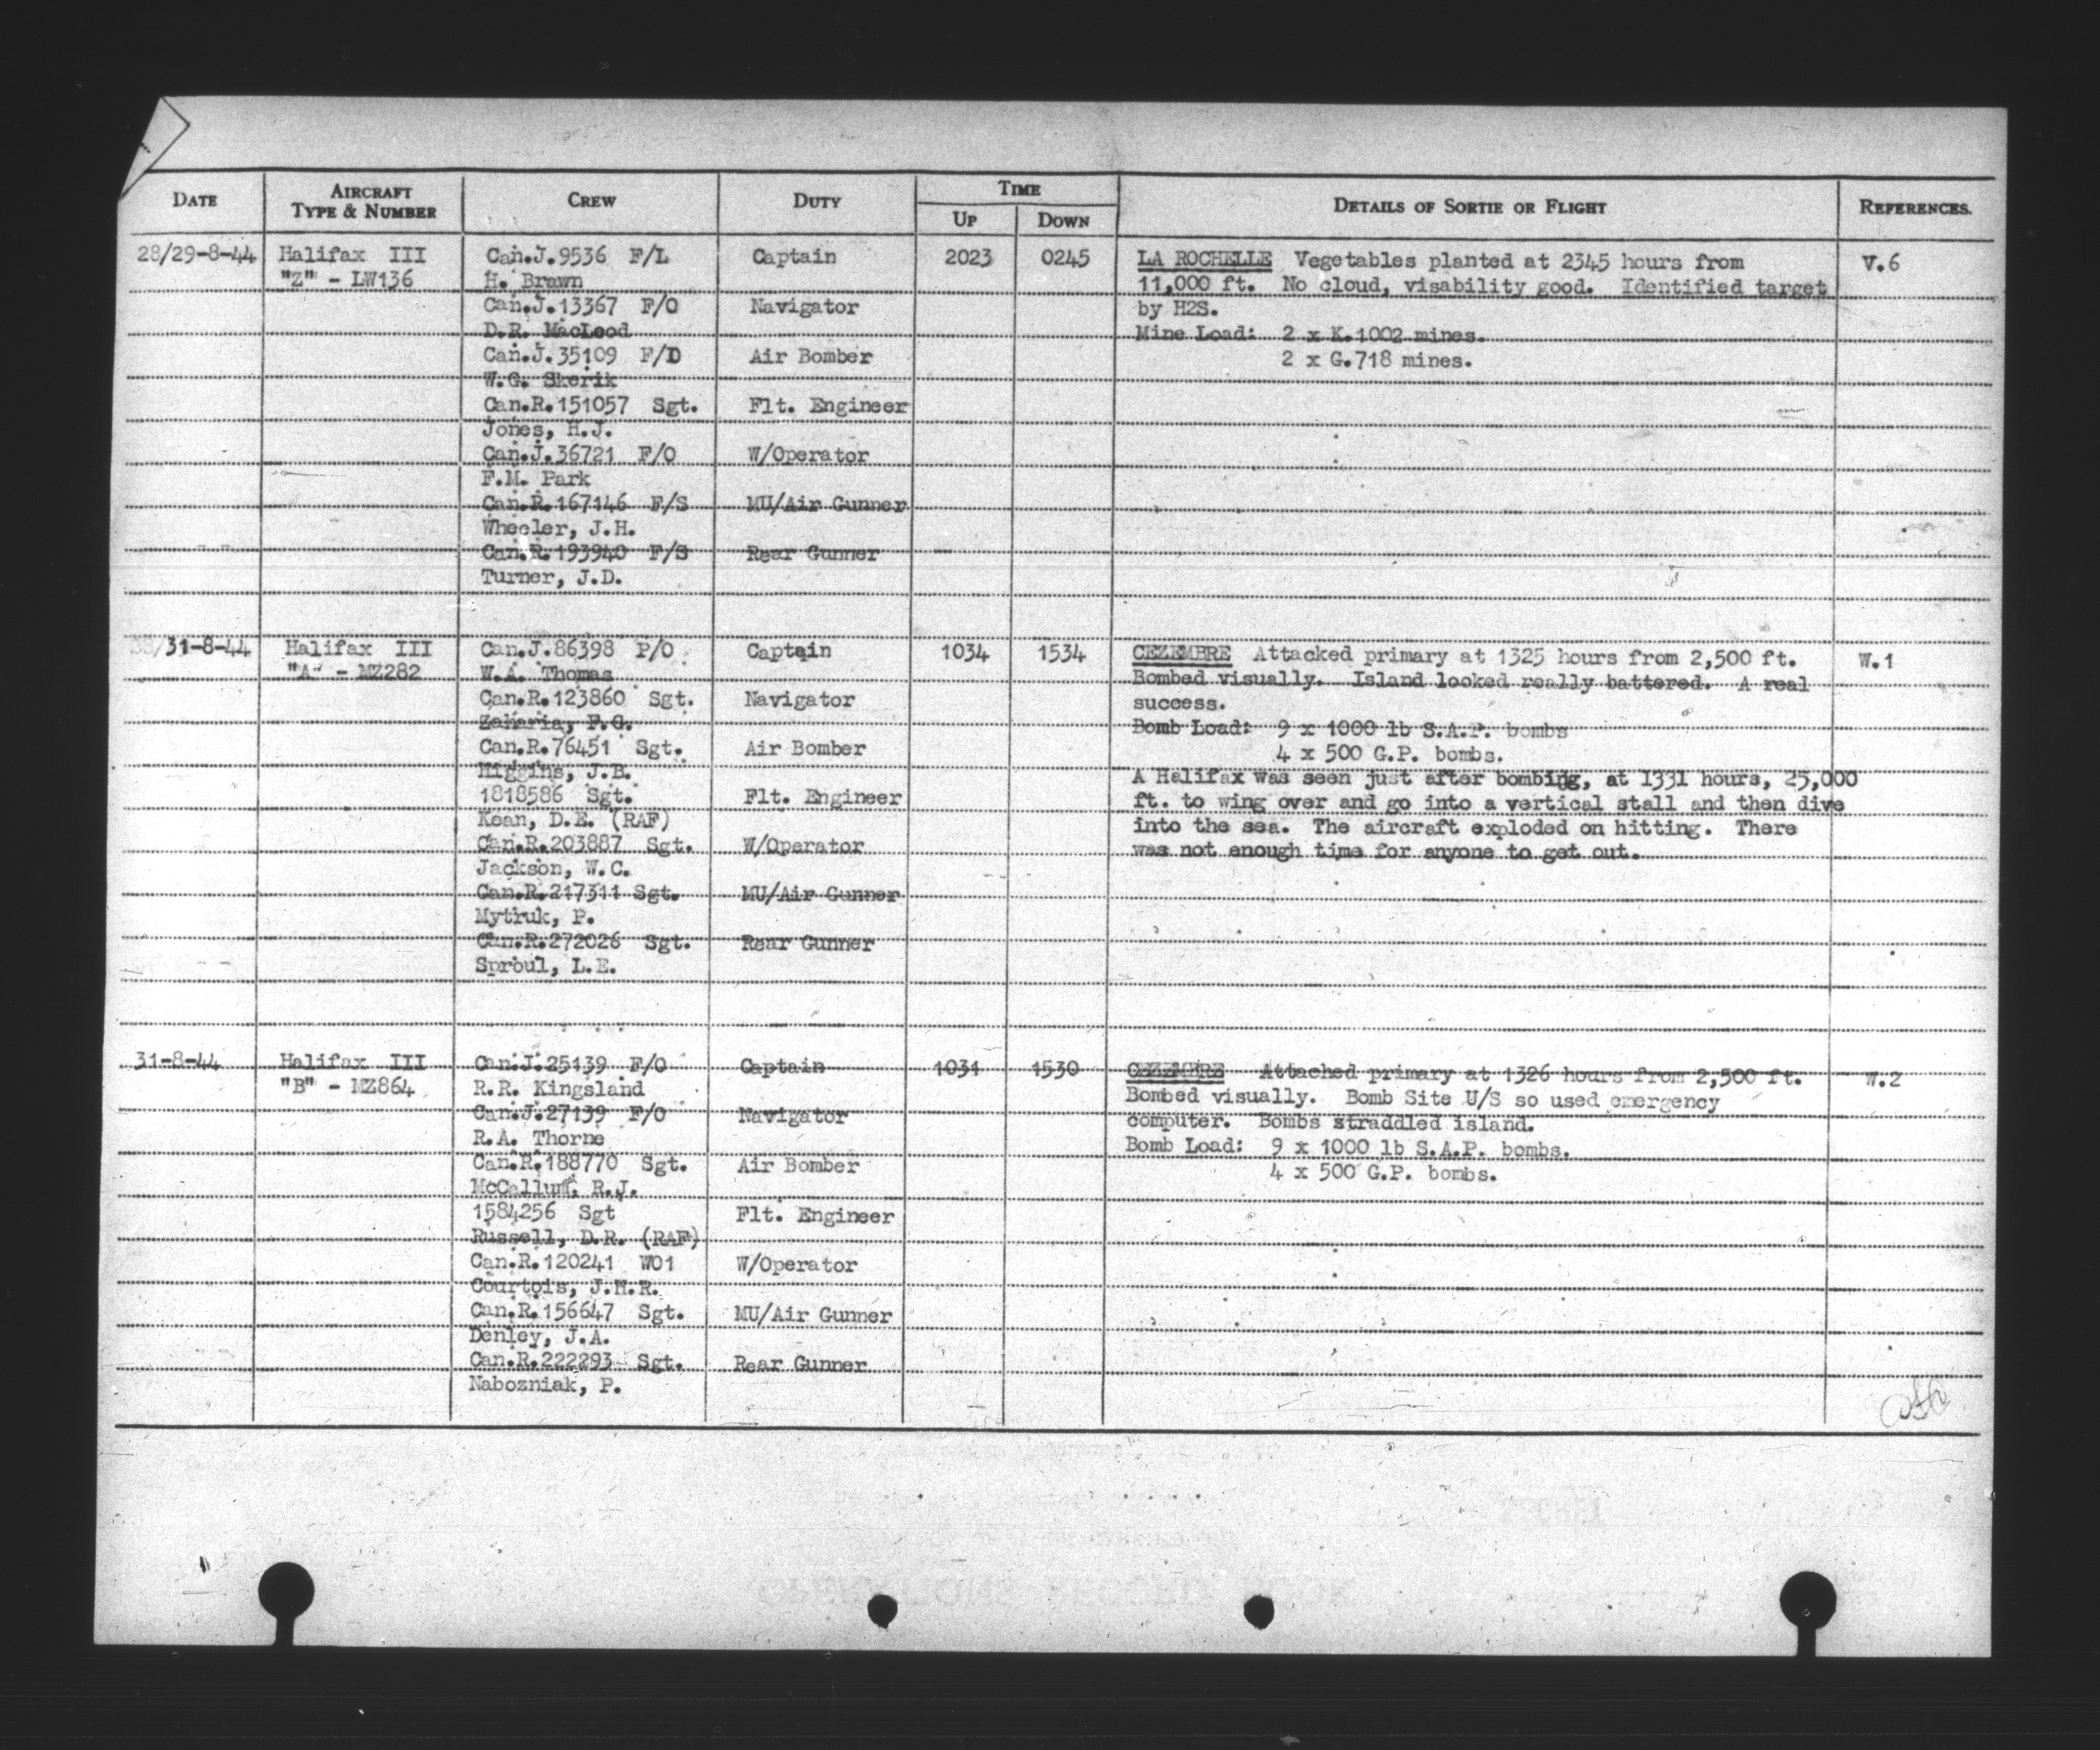 DATE AIRCRAFT TYPE & NUMBER CREW DUTY TIME UP DOWN DETAILS OF SORTIE OR FLIGHT REFERENCES.
28/29-8-44 Halifax III Can.J.9536 F/L Captain 2023 0245 LA ROCHELLE Vegetables planted at 2345 hours from V.6
"Z" - LW136 H. Brawn 11,000 ft. No cloud, visability good. Identified target
Can.J.13367 F/O Navigator by H2S.
D.R. MacLeod Mine Load: 2 x K.1002 mines.
Can.J.35109 F/D Air Bomber 2 x G.718 mines.
W.G. Skerik
Can.R.151057 Sgt. Flt. Engineer
Jones, H.J.
Can.J.36721 F/O W/Operator
F.M. Park
Can.R.167146 F/S MU/Air Gunner
Wheeler, J.H.
Can.R.193940 F/S Rear Gunner
Turner, J.D.
/31-8-44 Halifax III Can.J.86398 P/O Captain 1034 1534 CEZEMBRE Attacked primary at 1325 hours from 2,500 ft. W.1
"A" - MZ282 W.A. Thomas Bombed visually. Island looked really battered. A real
Can.R.123860 Sgt. Navigator success.
Zakaria, F.G. Bomb Load: 9 x 1000 lb S.A.P. bombs
Can.R.76451 Sgt. Air Bomber 4 x 500 G.P. bombs.
Higgins, J.B. A Halifax was seen just after bombing, at 1331 hours, 25,000
1818586 Sgt. Flt. Engineer ft. to wing over and go into a vertical stall and then dive
Kean, D.E. (RAF) into the sea. The aircraft exploded on hitting. There
Can.R.203887 Sgt. W/Operator was not enough time for anyone to get out.
Jackson, W.C.
Can.R.217311 Sgt. MU/Air Gunner
Mytruk, P.
Can.R.272026 Sgt. Rear Gunner
Sproul, L.E.
31-8-44 Halifax III Can.J.25139 F/O Captain 1031 1530 CEZEMBRE Attached primary at 1326 hours from 2,500 ft. W.2
"B" - MZ864 R.R. Kingsland Bombed visually. Bomb Site U/S so used emergency
Can.J.27139 F/O Navigator computer. Bombs straddled island.
R.A. Thorne Bomb Load: 9 x 1000 lb S.A.P. bombs.
Can.R.188770 Sgt. Air Bomber 4 x 500 G.P. bombs.
McCallum, R.J.
1584256 Sgt Flt. Engineer
Russell, D.R. (RAF)
Can.R.120241 WO1 W/Operator
Courtois, J.H.R.
Can.R.156647 Sgt. MU/Air Gunner
Denley, J.A.
Can.R.222293 Sgt. Rear Gunner
Nabozniak, P.